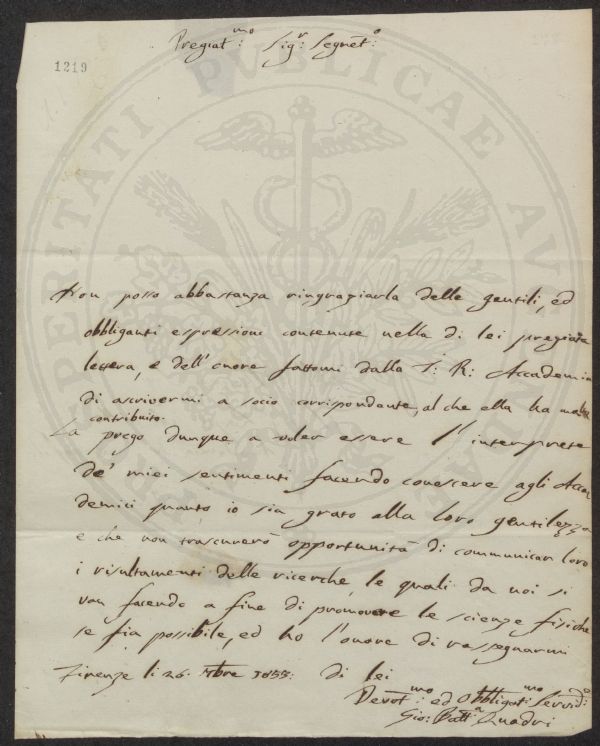 Pregiat:mo Sig:r Segret:o
1219
Non posso abbastanza ringraziarla delle gentili, ed
obbliganti espressioni contenute nella di lei pregiata
lettera, e dell'onore fattomi dalla I: R: Accademia
di ascrivermi a socio corrispondente, al che ella ha molto
contribuito.
La prego dunque a voler essere l'interprete
de' miei sentimenti facendo conoscere agli Acca
demici quanto io sia grato alla loro gentilezza
e che non trascurerò opportunità di communicar loro
i risultamenti delle ricerche, le quali da noi si
van facendo a fine di promovere le scienze fisiche
se fia possibile, ed ho l'onore di rassegnarmi
Firenze li 26. di lei
Devot:mo ed Obbligat:mo Servid:e
Gio: Batt:a Quadri